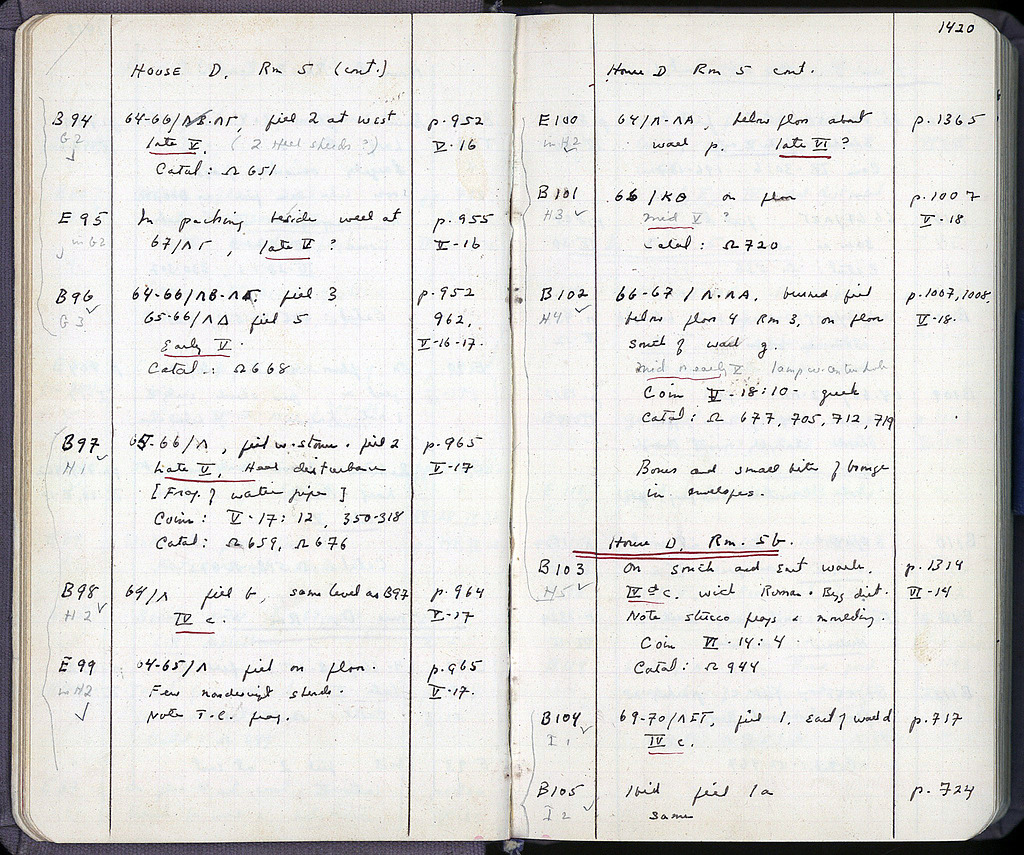 House D. Rm 5 (cont.)
B94 64-66/ΛB-ΛΓ, fill 2 at west p. 952
G2 late V. (2 Heel sherds ?) V-16
Catal: Ω 651
E95 In packing beside well at p. 955
in G2 67/ΛΓ, late V ? V-16
B96 64-66/ΛB-ΛΓ, fill 3 p. 952
G3 65-66/ΛΔ fill 5 962,
Early V. V-16-17.
Catal: Ω 668
B97 65-66/Λ, fill w. stones. fill 2 p. 965
H1 Late V, disturbance V-17
[Frag. of water pipe]
Coins: V-17: 12, 350-318
Catal: Ω 659, Ω 676
B98 64/Λ fill b, same level as B97 p. 964
H2 IV c. V-17
E99 64-65/Λ fill on floor. p. 965
in H2 Few nondescript sherds. V-17.
Note T.C. frag.
1420
House D Rm 5 cont.
E100 64/Λ-ΛA, below floor about p. 1365
in H2 wall p. late VI ?
B101 66/KΘ on floor p. 1007
H3 mid V ? V-18
Catal: Ω 720
B102 66-67/Λ-ΛA, burned fill p. 1007, 1008,
H4 below floor 4 Rm 3, on floor V-18.
south of wall g.
mid or early V lamp w. center hole
Coin V-18:10- greek
Catal: Ω 677, 705, 712, 719
Bones and small bits of bronze
in envelopes.
House D, Rm. 5b.
B103 On south and East walls, p. 1314
H5 IV c. with Roman + Byz dist. VI-14
Note stucco frags & moulding.
Coin VI-14:4
Catal: Ω 944
B104 69-70/ΛΣΤ, fill 1, East of wall d p. 717
I1 IV c.
B105 Ibid fill 1a p. 724
I2 same